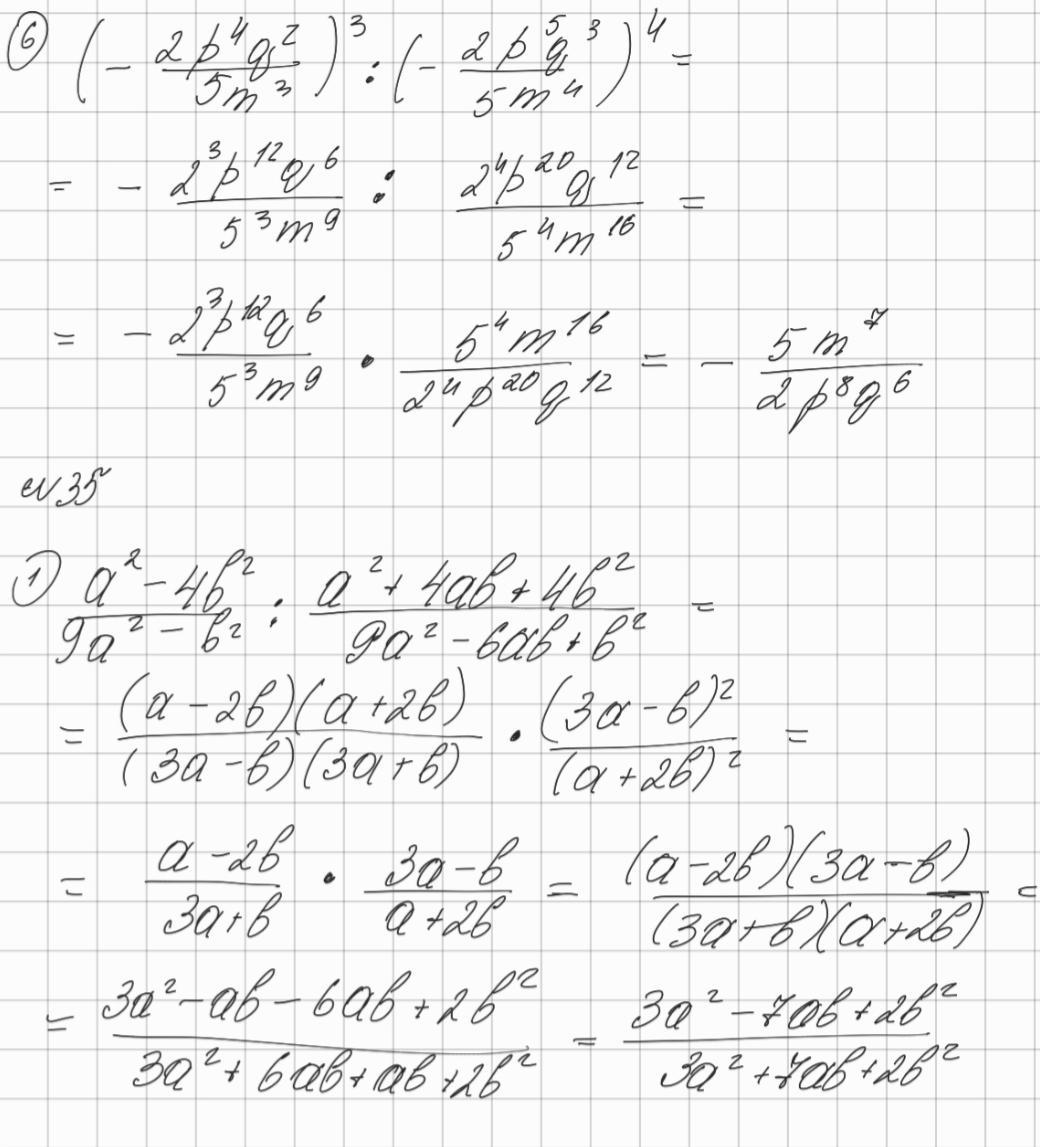 ⑥ (- 2p⁴q²/5m³)³ : (- 2p⁵q³/5m⁴)⁴ =
= - 2³p¹²q⁶/5³m⁹ : 2⁴p²⁰q¹²/5⁴m¹⁶ =
= - 2³p¹²q⁶/5³m⁹ · 5⁴m¹⁶/2⁴p²⁰q¹² = - 5m⁷/2p⁸q⁶
№35
① (a² - 4b²)/(9a² - b²) : (a² + 4ab + 4b²)/(9a² - 6ab + b²) =
= (a - 2b)(a + 2b)/(3a - b)(3a + b) · (3a - b)²/(a + 2b)² =
= (a - 2b)/(3a + b) · (3a - b)/(a + 2b) = (a - 2b)(3a - b)/(3a + b)(a + 2b) =
= (3a² - ab - 6ab + 2b²)/(3a² + 6ab + ab + 2b²) = (3a² - 7ab + 2b²)/(3a² + 7ab + 2b²)